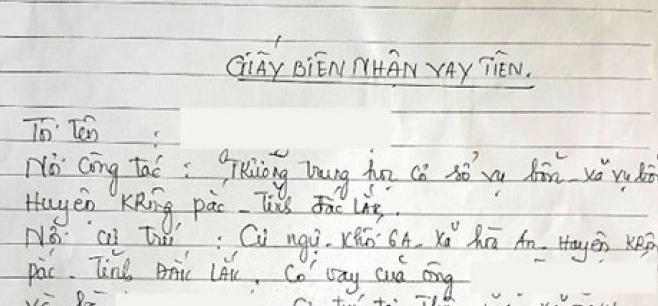 GIẤY BIÊN NHẬN VAY TIỀN.
Tôi Tên :
Nơi Công Tác : Trường trung học Cơ sở vụ bổn - xã vụ bổn
Huyện KRông pắc - Tỉnh Đắc Lắk.
Nơi cư trú : Cư ngụ - Khối 6A - Xã hòa An - Huyện KRông
pắc - Tỉnh ĐẮK LẮK. Có vay của ông